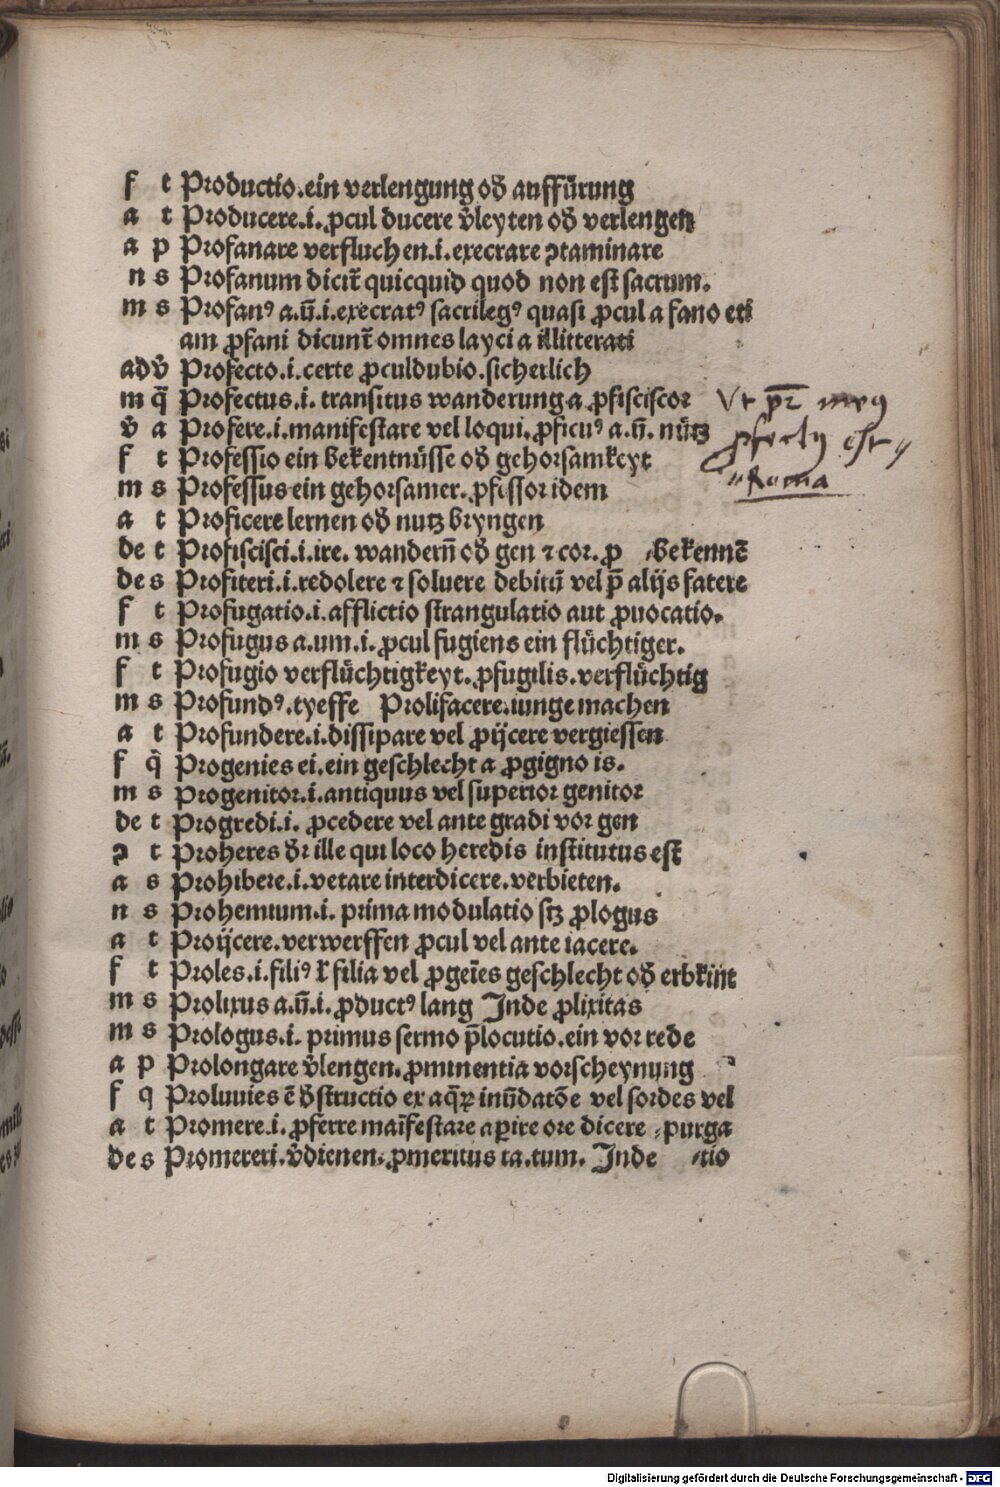 f t Productio.ein verlengung od̕ auffürung
a t Producere.i.ꝓcul ducere v̕leyten od̕ verlengen
a p Profanare verfluchen.i.execrare ꝯtaminare
n s Profanum dicit̃ quicquid quod non est sacrum.
m s Profanꝰ a.ū.i.execratꝰ sacrilegꝰ quasi ꝓcul a fano eti
am ꝓfani dicunt̃ omnes layci a illitterati
adv̕ Profecto.i.certe ꝓculdubio.sicherlich
m q̄ Profectus.i.transitus wanderung a ꝓfisciscor
v̕ a Profere.i.manifestare vel loqui.ꝓficuꝰ a.ū. nütz
Vt pr̄ meꝰ
ꝓfectꝰ est
Roma
f t Professio ein bekentnüsse od̕ gehorsamkeyt
m s Professus ein gehorsamer.ꝓfessor idem
a t Proficere lernen od̕ nutz bryngen
de t Profiscisci.i.ire. wandern̄ od̕ gen ⁊ cor.ꝓ bekennē
de s Profiteri.i.redolere ⁊ soluere debitū vel p̄ alijs fatere
f t Profugatio.i.afflictio strangulatio aut ꝓuocatio.
m s Profugus a.um.i.ꝓcul fugiens ein flüchtiger.
f t Profugio verflüchtigkeyt.ꝓfugilis.verflüchtig
m s Profundꝰ.tyeffe Prolifacere.iunge machen
a t Profundere.i.dissipare vel ꝓijcere vergiessen
f q̄ Progenies ei.ein geschlecht a ꝓgigno is.
m s Progenitor.i.antiquus vel superior genitor
de t Progredi.i. ꝓcedere vel ante gradi vor gen
ꝯ t Proheres dr̄ ille qui loco heredis institutus est
a s Prohibere.i.vetare interdicere.verbieten.
n s Prohemium.i. prima modulatio sꝫ ꝓlogus
a t Proijcere.verwerffen ꝓcul vel ante iacere.
f t Proles.i.filiꝰ ł filia vel ꝓgeīes geschlecht od̕ erbkint
m s Prolixus a.ū.i.ꝓductꝰ lang Inde ꝓlixitas
m s Prologus.i. primus sermo p̄locutio.ein vor rede
a p Prolongare v̕lengen.ꝓminentia vorscheynung
f q Proluuies ē d̕structio ex aq̄ꝝ inūdatōe vel sordes vel
a t Promere.i.ꝓferre maīfestare aꝑire ore dicere purga
de s Promereri.v̕dienen.ꝓmeritus ta.tum. Inde tio
Digitalisierung gefördert durch die Deutsche Forschungsgemeinschaft - DFG